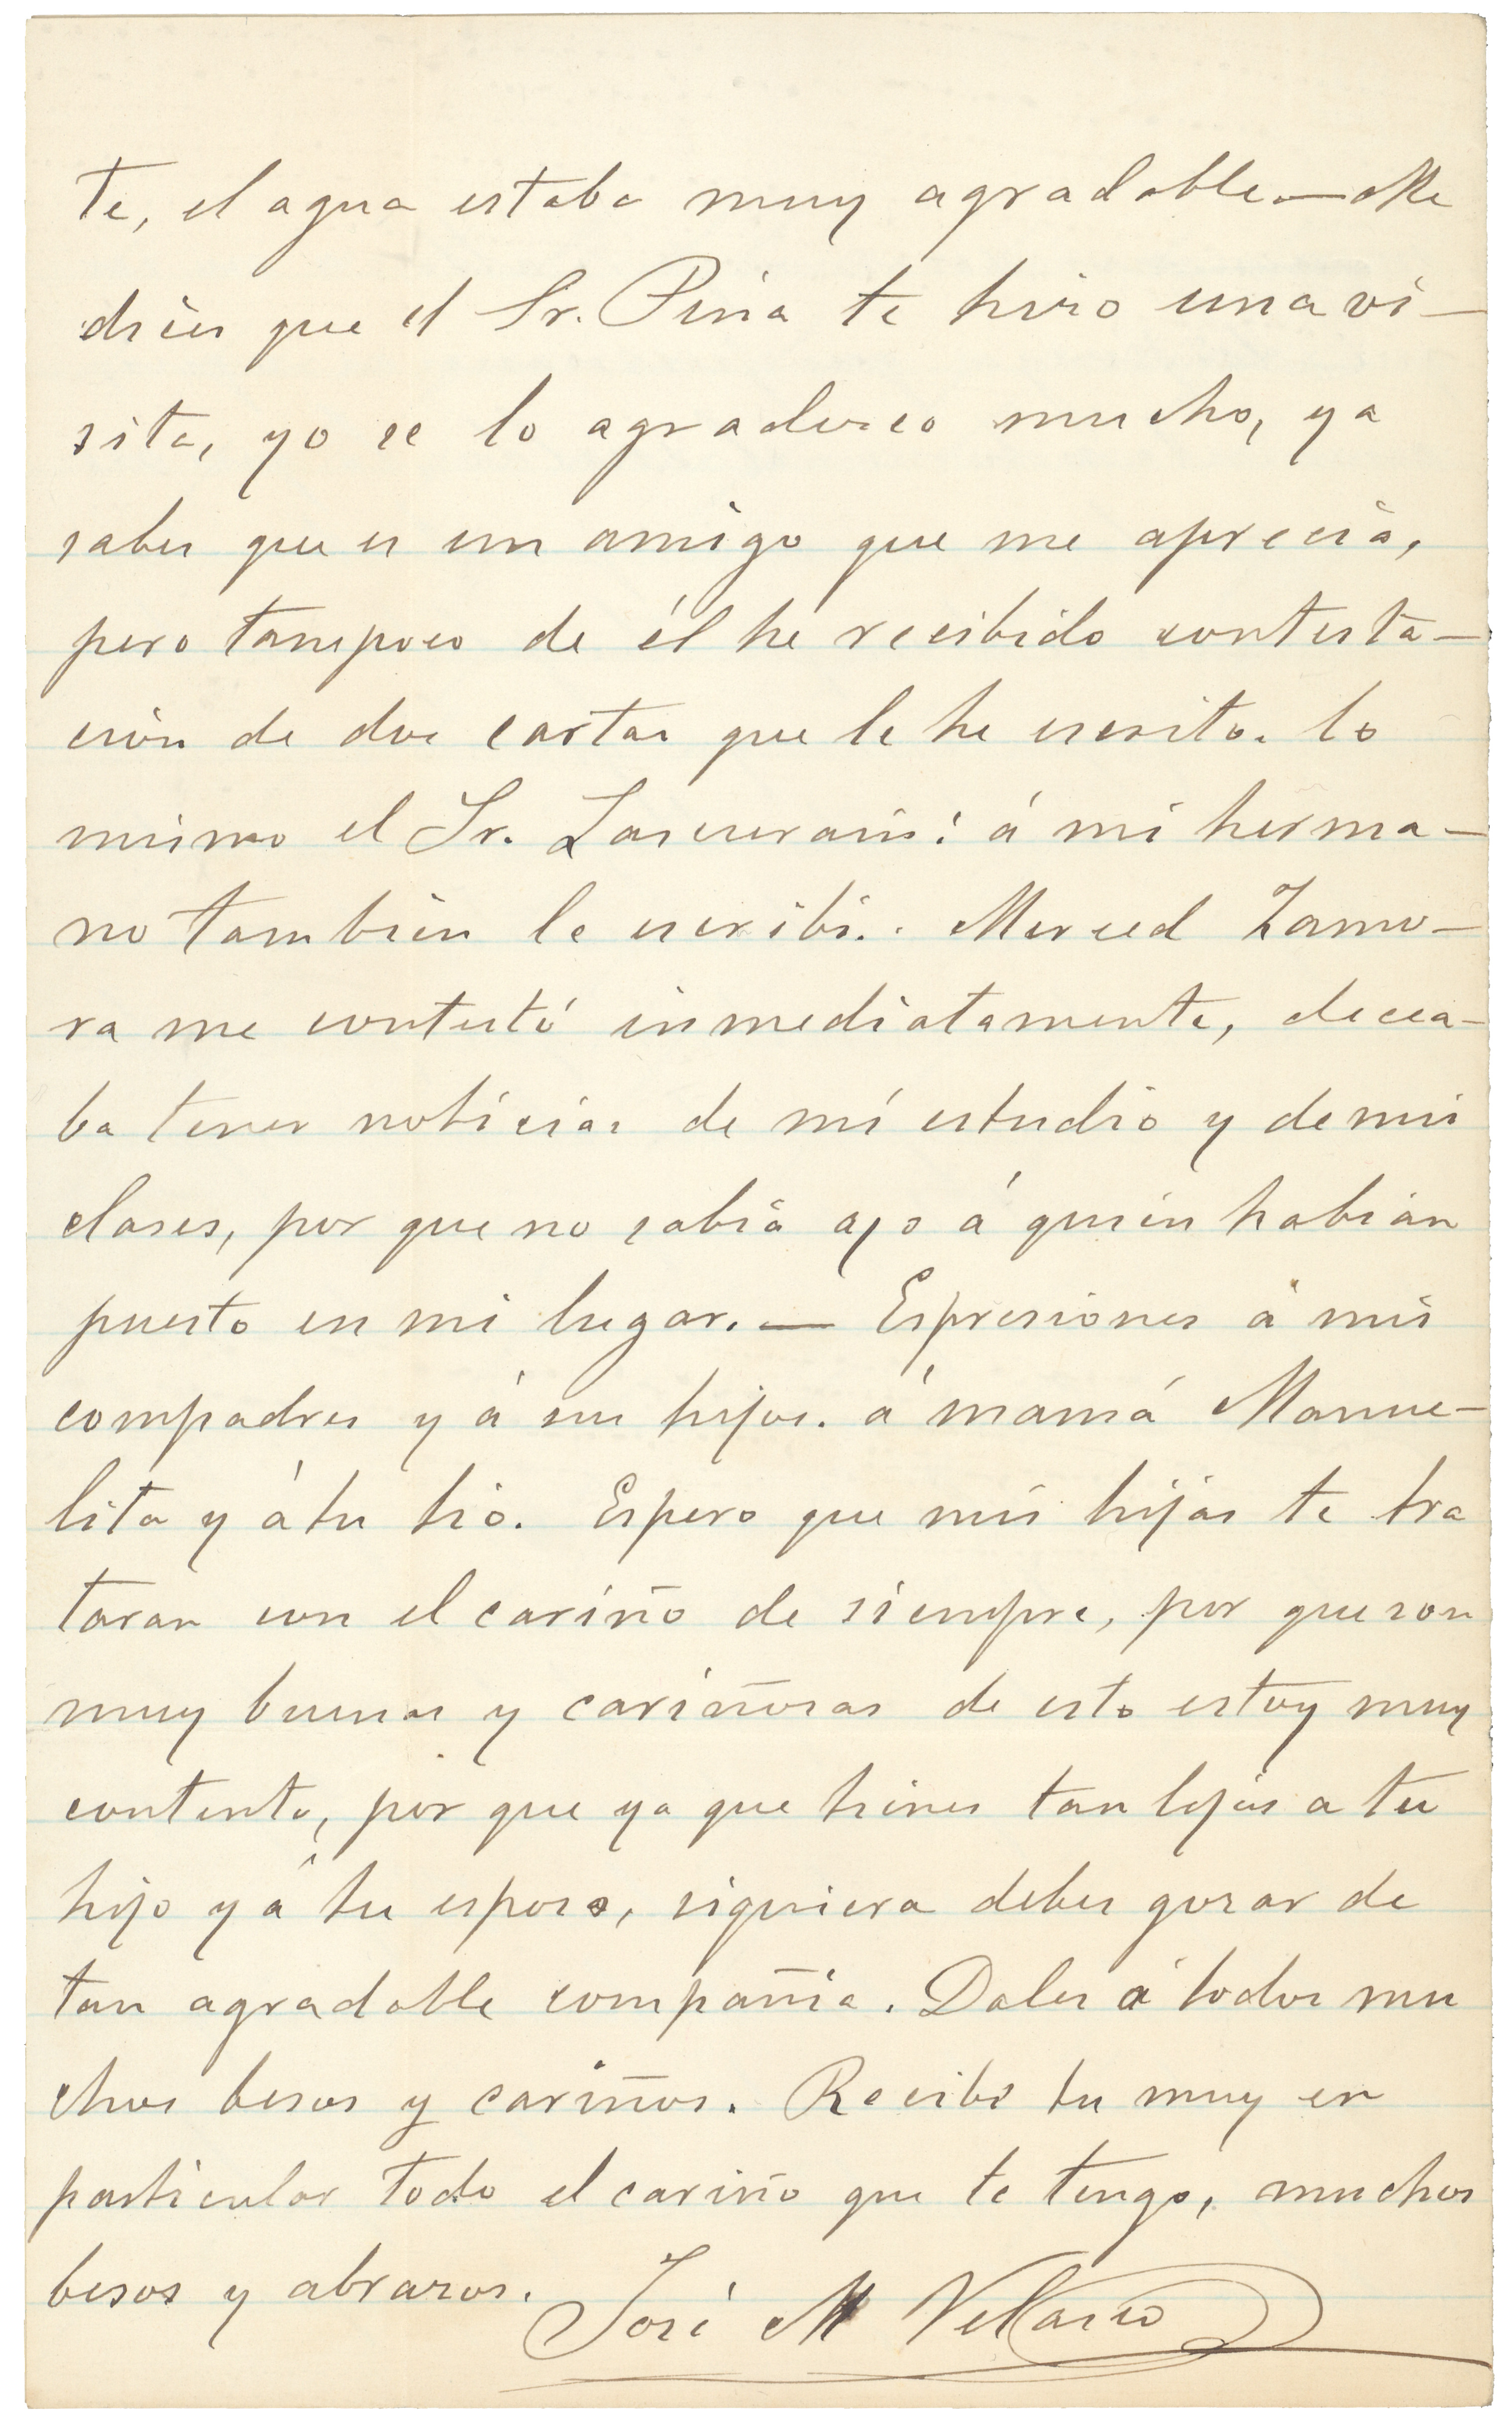 te, el agua estaba muy agradable.—Me
dices que el Sr. Pina te hizo una vi—
sita, yo se lo agradezco mucho, ya
sabes que es un amigo que me aprecia,
pero tampoco de él he recibido contesta—
ción de dos cartas que le he escrito. lo
mismo el Sr. Lascurain: á mi herma—
no tambien le escribi.. Merced Zamo—
ra me contestó inmediatamente, decea—
ba tener noticias de mi estudio y de mis
clases, por que no sabia yo á quien habian
puesto en mi lugar.— Espresiones á mis
compadres y á sus hijos. á mamá Manue—
lita y á tu tio. Espero que mis hijas te tra
taran con el cariño de siempre, por que son
muy buenas y cariñosas de esto estoy muy
contento, por que ya que tienes tan lejos a tu
hijo y á tu esposo, siquiera debes gozar de
tan agradable compañia. Dales á todos mu
chos besos y cariños. Recibe tu muy en
particular todo el cariño que te tengo, muchos
besos y abrazos. José M Velasco